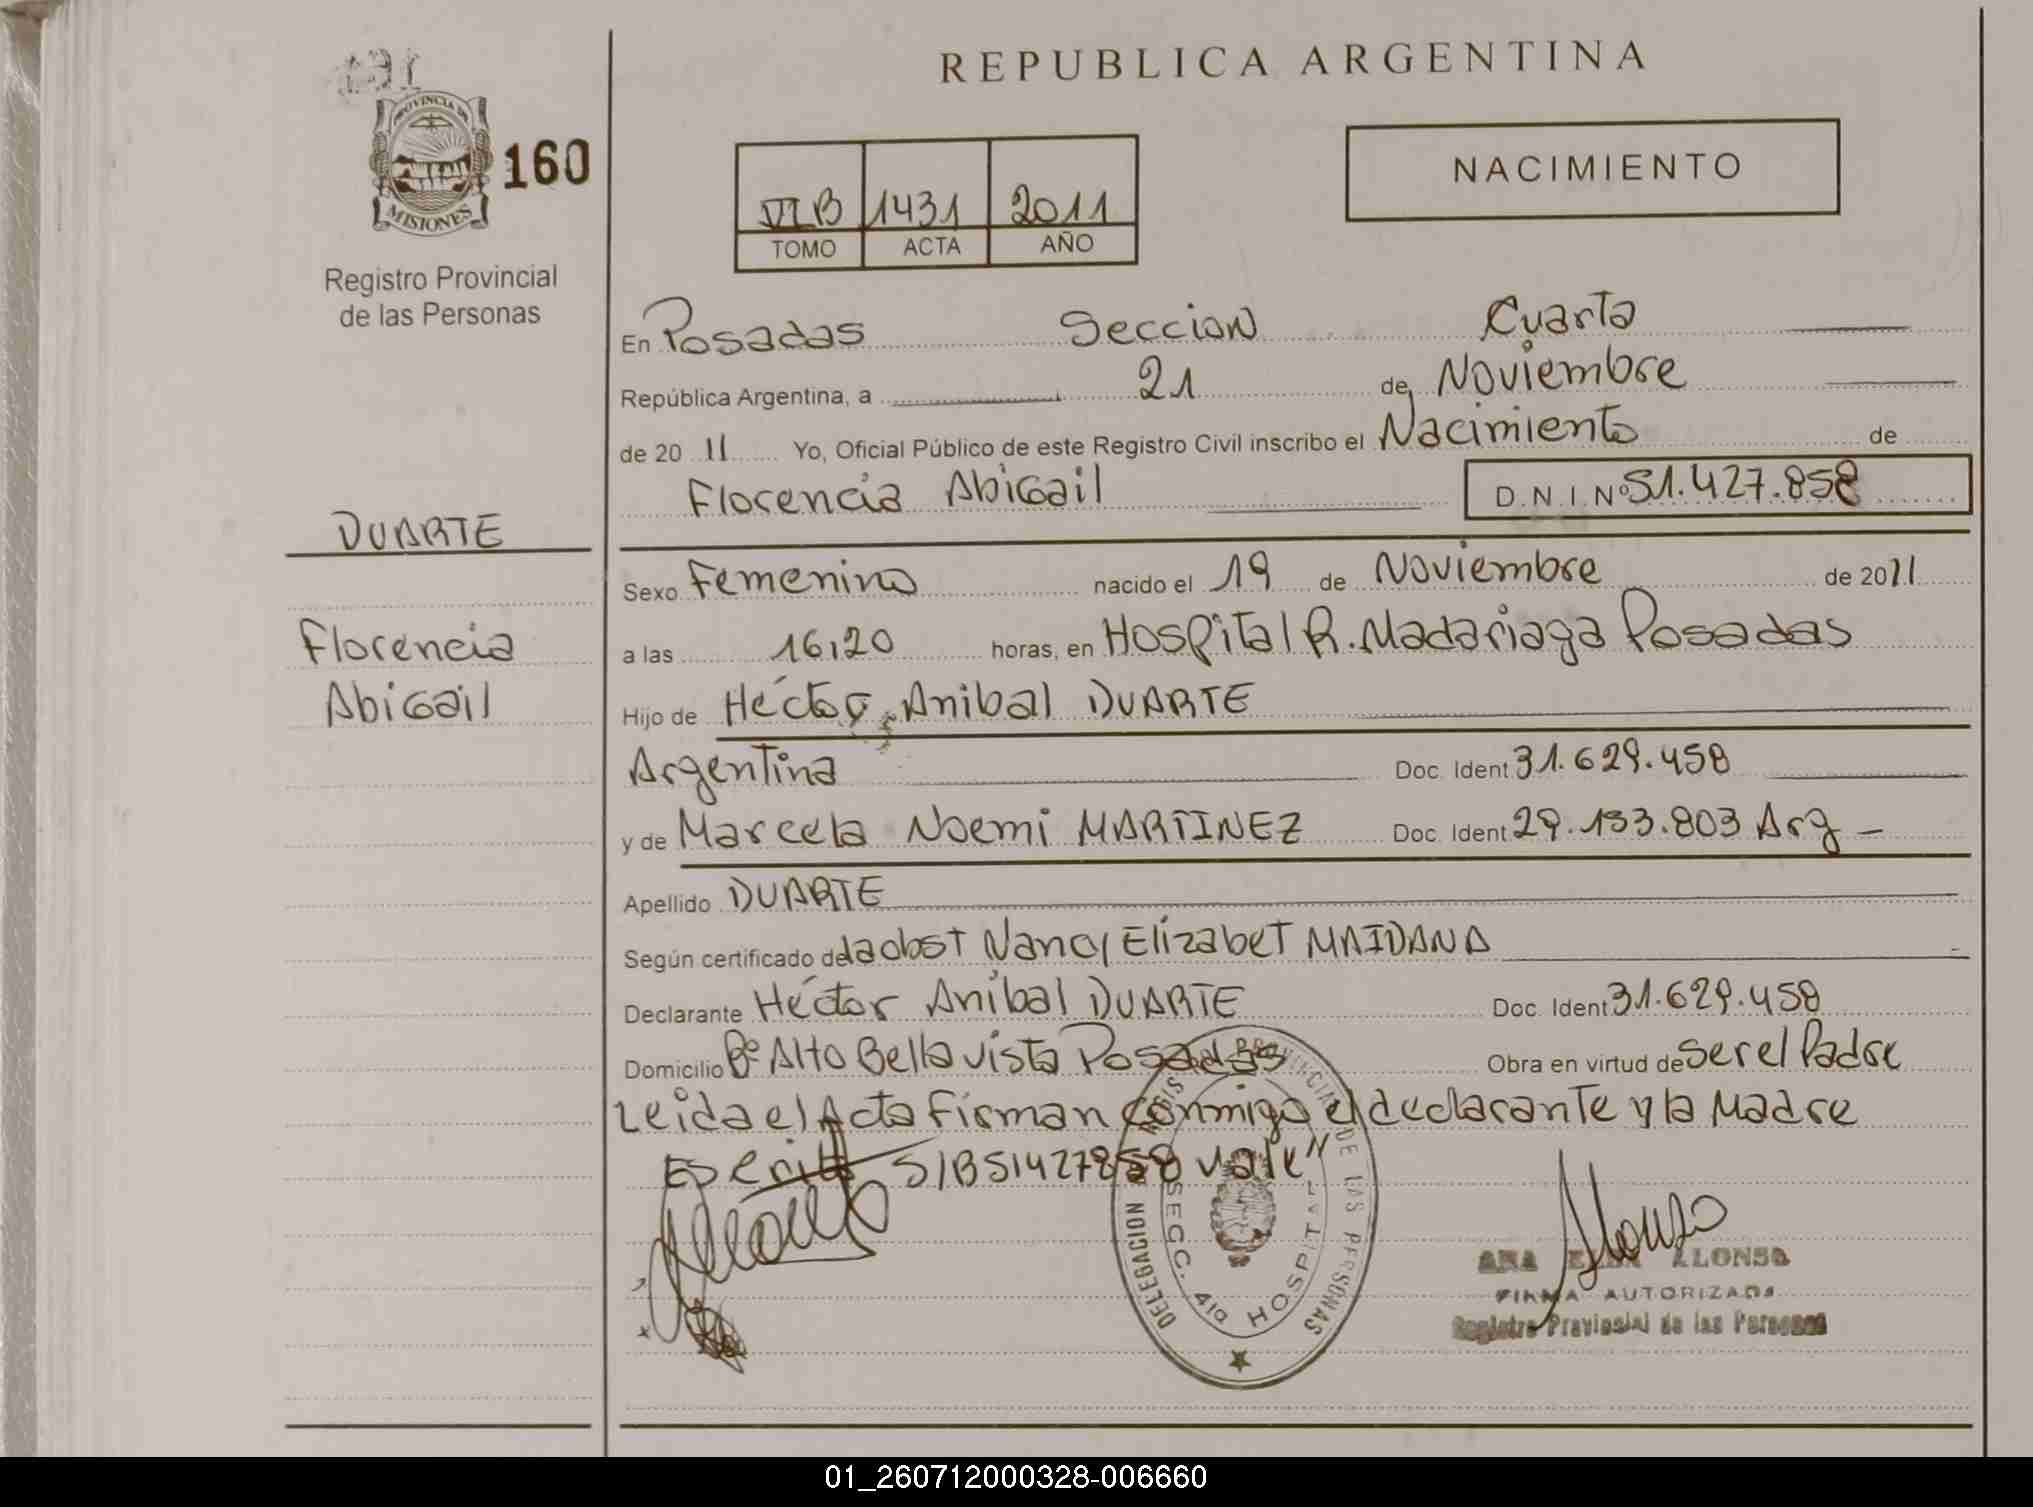 REPUBLICA ARGENTINA
PROVINCIA DE
MISIONES
160
Registro Provincial
de las Personas
NACIMIENTO
VI B 1431 2011
TOMO ACTA AÑO
En Posadas Seccion Cuarta
República Argentina, a 21 de Noviembre
de 20 11 Yo, Oficial Público de este Registro Civil inscribo el Nacimiento de
Florencia Abigail D.N.I. Nº 51.427.858
DUARTE
Florencia
Abigail
Sexo Femenino nacido el 19 de Noviembre de 2011
a las 16,20 horas, en Hospital R. Madariaga Posadas
Hijo de Héctor Anibal DUARTE
Argentina Doc. Ident 31.629.458
y de Marcela Noemi MARTINEZ Doc. Ident 29.133.803 Arg –
Apellido DUARTE
Según certificado de la obst Nancy Elizabet MAIDANA
Declarante Héctor Anibal DUARTE Doc. Ident 31.629.458
Domicilio Bº Alto Bella vista Posadas Obra en virtud de ser el Padre
Leida el Acta Firman conmigo el declarante y la Madre
S/B 51427858 Vale"
DELEGACION REGIS PROVINCIAL DE LAS PERSONAS
SECC. 4ta HOSPITAL
ANA ALONSO
FIRMA AUTORIZADA
Registro Provincial de las Personas
01_260712000328-006660